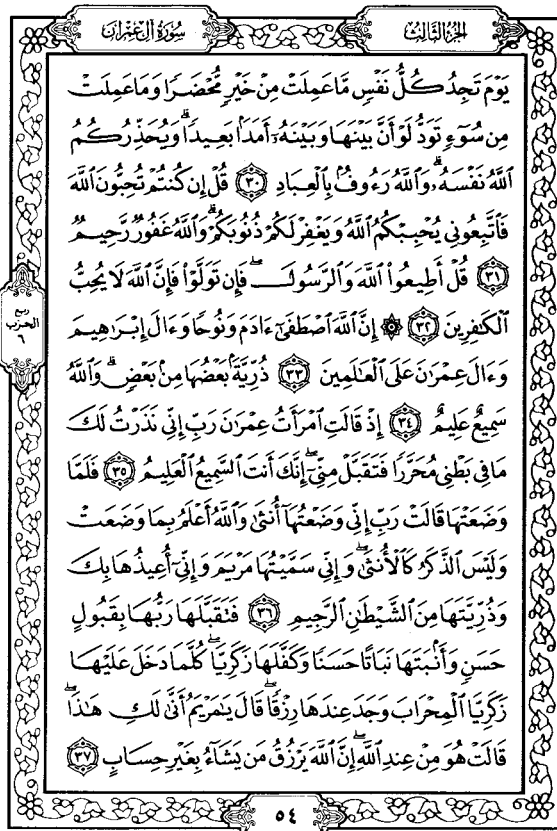 سُورَةُ آلِ عِمْرَان
الجُزْءُ الثَّالِث
يَوْمَ تَجِدُ كُلُّ نَفْسٍ مَّا عَمِلَتْ مِنْ خَيْرٍ مُّحْضَرًا وَمَا عَمِلَتْ
مِن سُوٓءٍ تَوَدُّ لَوْ أَنَّ بَيْنَهَا وَبَيْنَهُۥٓ أَمَدًۢا بَعِيدًا ۗ وَيُحَذِّرُكُمُ
ٱللَّهُ نَفْسَهُۥ ۗ وَٱللَّهُ رَءُوفٌۢ بِٱلْعِبَادِ ٣٠ قُلْ إِن كُنتُمْ تُحِبُّونَ ٱللَّهَ
فَٱتَّبِعُونِى يُحْبِبْكُمُ ٱللَّهُ وَيَغْفِرْ لَكُمْ ذُنُوبَكُمْ ۗ وَٱللَّهُ غَفُورٌ رَّحِيمٌ
٣١ قُلْ أَطِيعُوا۟ ٱللَّهَ وَٱلرَّسُولَ ۖ فَإِن تَوَلَّوْا۟ فَإِنَّ ٱللَّهَ لَا يُحِبُّ
ٱلْكَٰفِرِينَ ٣٢ ۞ إِنَّ ٱللَّهَ ٱصْطَفَىٰٓ ءَادَمَ وَنُوحًا وَءَالَ إِبْرَٰهِيمَ
وَءَالَ عِمْرَٰنَ عَلَى ٱلْعَٰلَمِينَ ٣٣ ذُرِّيَّةًۢ بَعْضُهَا مِنۢ بَعْضٍ ۗ وَٱللَّهُ
سَمِيعٌ عَلِيمٌ ٣٤ إِذْ قَالَتِ ٱمْرَأَتُ عِمْرَٰنَ رَبِّ إِنِّى نَذَرْتُ لَكَ
مَا فِى بَطْنِى مُحَرَّرًا فَتَقَبَّلْ مِنِّىٓ ۖ إِنَّكَ أَنتَ ٱلسَّمِيعُ ٱلْعَلِيمُ ٣٥ فَلَمَّا
وَضَعَتْهَا قَالَتْ رَبِّ إِنِّى وَضَعْتُهَآ أُنثَىٰ وَٱللَّهُ أَعْلَمُ بِمَا وَضَعَتْ
وَلَيْسَ ٱلذَّكَرُ كَٱلْأُنثَىٰ ۖ وَإِنِّى سَمَّيْتُهَا مَرْيَمَ وَإِنِّىٓ أُعِيذُهَا بِكَ
وَذُرِّيَّتَهَا مِنَ ٱلشَّيْطَٰنِ ٱلرَّجِيمِ ٣٦ فَتَقَبَّلَهَا رَبُّهَا بِقَبُولٍ
حَسَنٍ وَأَنۢبَتَهَا نَبَاتًا حَسَنًا وَكَفَّلَهَا زَكَرِيَّا ۖ كُلَّمَا دَخَلَ عَلَيْهَا
زَكَرِيَّا ٱلْمِحْرَابَ وَجَدَ عِندَهَا رِزْقًا ۖ قَالَ يَٰمَرْيَمُ أَنَّىٰ لَكِ هَٰذَا ۖ
قَالَتْ هُوَ مِنْ عِندِ ٱللَّهِ ۖ إِنَّ ٱللَّهَ يَرْزُقُ مَن يَشَآءُ بِغَيْرِ حِسَابٍ ٣٧
ربع
الحزب
٦
٥٤